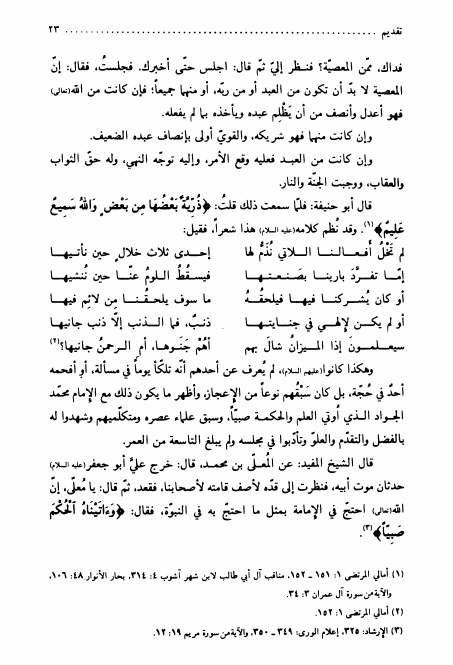 تقديم ........................................................ ٢٣
فداك، ممّن المعصيّة؟ فنـظر إليّ ثمّ قال: اجلس حتّى أخبرك. فجلستُ، فقال: إنّ
المعصية لا بدّ أن تكون من العبد أو من ربّه، أو منهما جميعاً؛ فإن كانت من الله(تعالى)
فهو أعدل وأنصف من أن يَظْلِم عبده ويأخذه بما لم يفعله.
وإن كانت منهما فهو شريكه، والقويّ أولى بإنصاف عبده الضعيف.
وإن كانت من العبـد فعليه وقع الأمر، وإليه توجّه النهي، وله حقّ الثواب
والعقاب، ووجبت الجنّة والنار.
قال أبو حنيفة: فلمّا سمعت ذلك قلتُ: ﴿ذُرِّيَّةً بَعْضُهَا مِن بَعْضٍ وَاللهُ سَمِيعٌ
عَلِيمٌ﴾(١). وقد نُظم كلامه(عليه السلام) هذا شعراً، فقيل:
لم تَخْلُ أفـعـالـنـا الـلاتي نُذَمُّ لها إحـدى ثلاث خلالٍ حين نأتـيـهـا
إمّـا تـفـرَّدَ بارينـا بصَـنـعـتـهـا فيـسـقُطُ الـلومُ عنّـا حين نُنشيـهـا
أو كان يُشـركنـا فيـهـا فيلحقُـهُ ما سوف يلحـقُـنـا مِن لائِمٍ فيهـا
أو لم يـكـن لإلهي في جنايتـهـا ذنبٌ، فما الـذنب إلّا ذنب جانيهـا
سيعـلمـون إذا الميـزانُ شالَ بهم أهُمْ جَنَوهـا، أم الـرحمنُ جانيهـا؟(٢)
وهكذا كانوا(عليهم السلام)، لم يُعرف عن أحدهم أنّه تلكّأ يوماً في مسألة، أو أفحمه
أحدٌ في حُجّة، بل كان سَبْقُهم نوعاً من الإعجاز، وأظهر ما يكون ذلك مع الإمام محمّد
الجواد الـذي أُوتي العلم والحكمة صبيّاً، وسبق علماء عصره ومتكلّميهم وشهدوا له
بالفضل والتقدّم والعلوّ وتأدّبوا في مجلسه ولم يبلغ التاسعة من العمر.
قال الشيخ المفيد: عن المُعلّى بن محمـد، قال: خرج عليَّ أبو جعفر(عليه السلام)
حدثان موت أبيه، فنظرت إلى قدّه لأصف قامته لأصحابنا، فقعد، ثمّ قال: يا مُعلّى، إنّ
الله(تعالى) احتجّ في الإمامة بمثل ما احتجّ به في النبوّة، فقال: ﴿وَءَاتَيْنَاهُ الْحُكْمَ
صَبِيّاً﴾(٣).
(١) أمالي المرتضى ١: ١٥١ ـ ١٥٢، مناقب آل أبي طالب لابن شهر آشوب ٤: ٣١٤، بحار الأنوار ٤٨: ١٠٦،
والآية من سورة آل عمران ٣: ٣٤.
(٢) أمالي المرتضى ١: ١٥٢.
(٣) الإرشاد: ٣٢٥، إعلام الورى: ٣٤٩ ـ ٣٥٠، والآية من سورة مريم ١٩: ١٢.